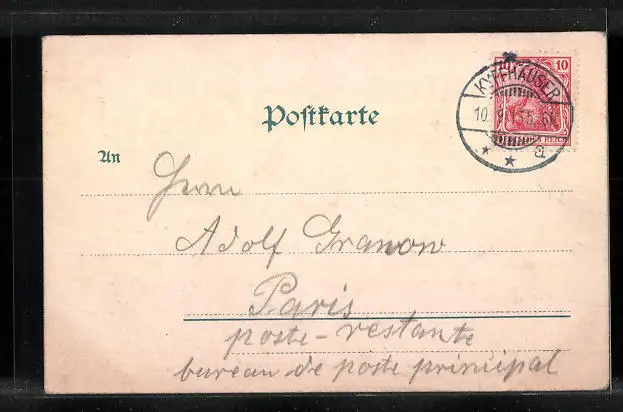 10 10
KYFFHÄUSER
Postkarte
10. 9.
DEUTSCHES REICH
a
An
Herrn
Adolf Granow
Paris
poste-restante
bureau de poste principal